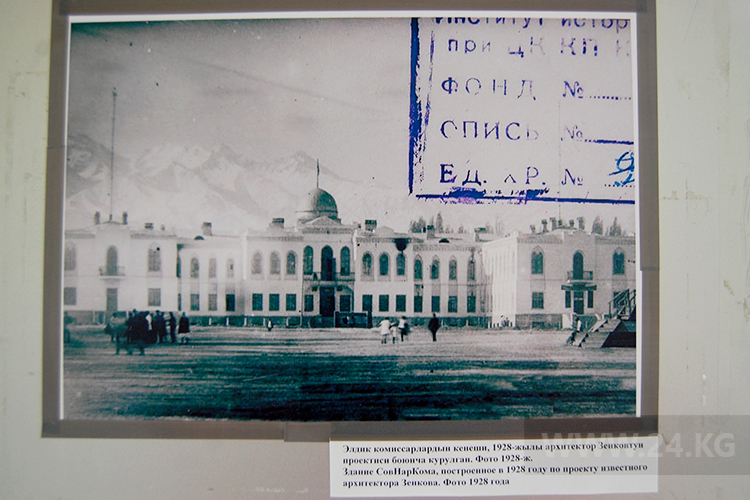 Институт истор
при ЦК КП К
ФОНД №
ОПИСЬ №
ЕД. ХР. №
Элдик комиссарлардын кеңеши, 1928-жылы архитектор Зенковтун
проектиси боюнча курулган. Фото 1928-ж.
Здание СовНарКома, построенное в 1928 году по проекту известного
архитектора Зенкова. Фото 1928 года
WWW.24.KG